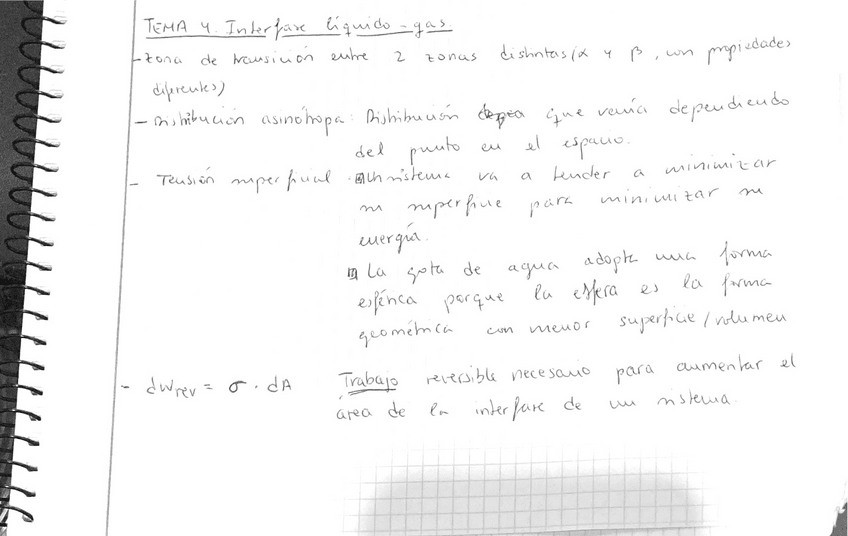 TEMA 4. Interfase líquido-gas.
- Zona de transición entre 2 zonas distintas (α y β, con propiedades
diferentes)
- Distribución asinótropa: Distribución que varía dependiendo
del punto en el espacio.
- Tensión superficial Un sistema va a tender a minimizar
su superficie para minimizar su
energía.
La gota de agua adopta una forma
esférica porque la esfera es la forma
geométrica con menor superficie/volumen
- dWrev = σ · dA Trabajo reversible necesario para aumentar el
área de la interfase de un sistema.